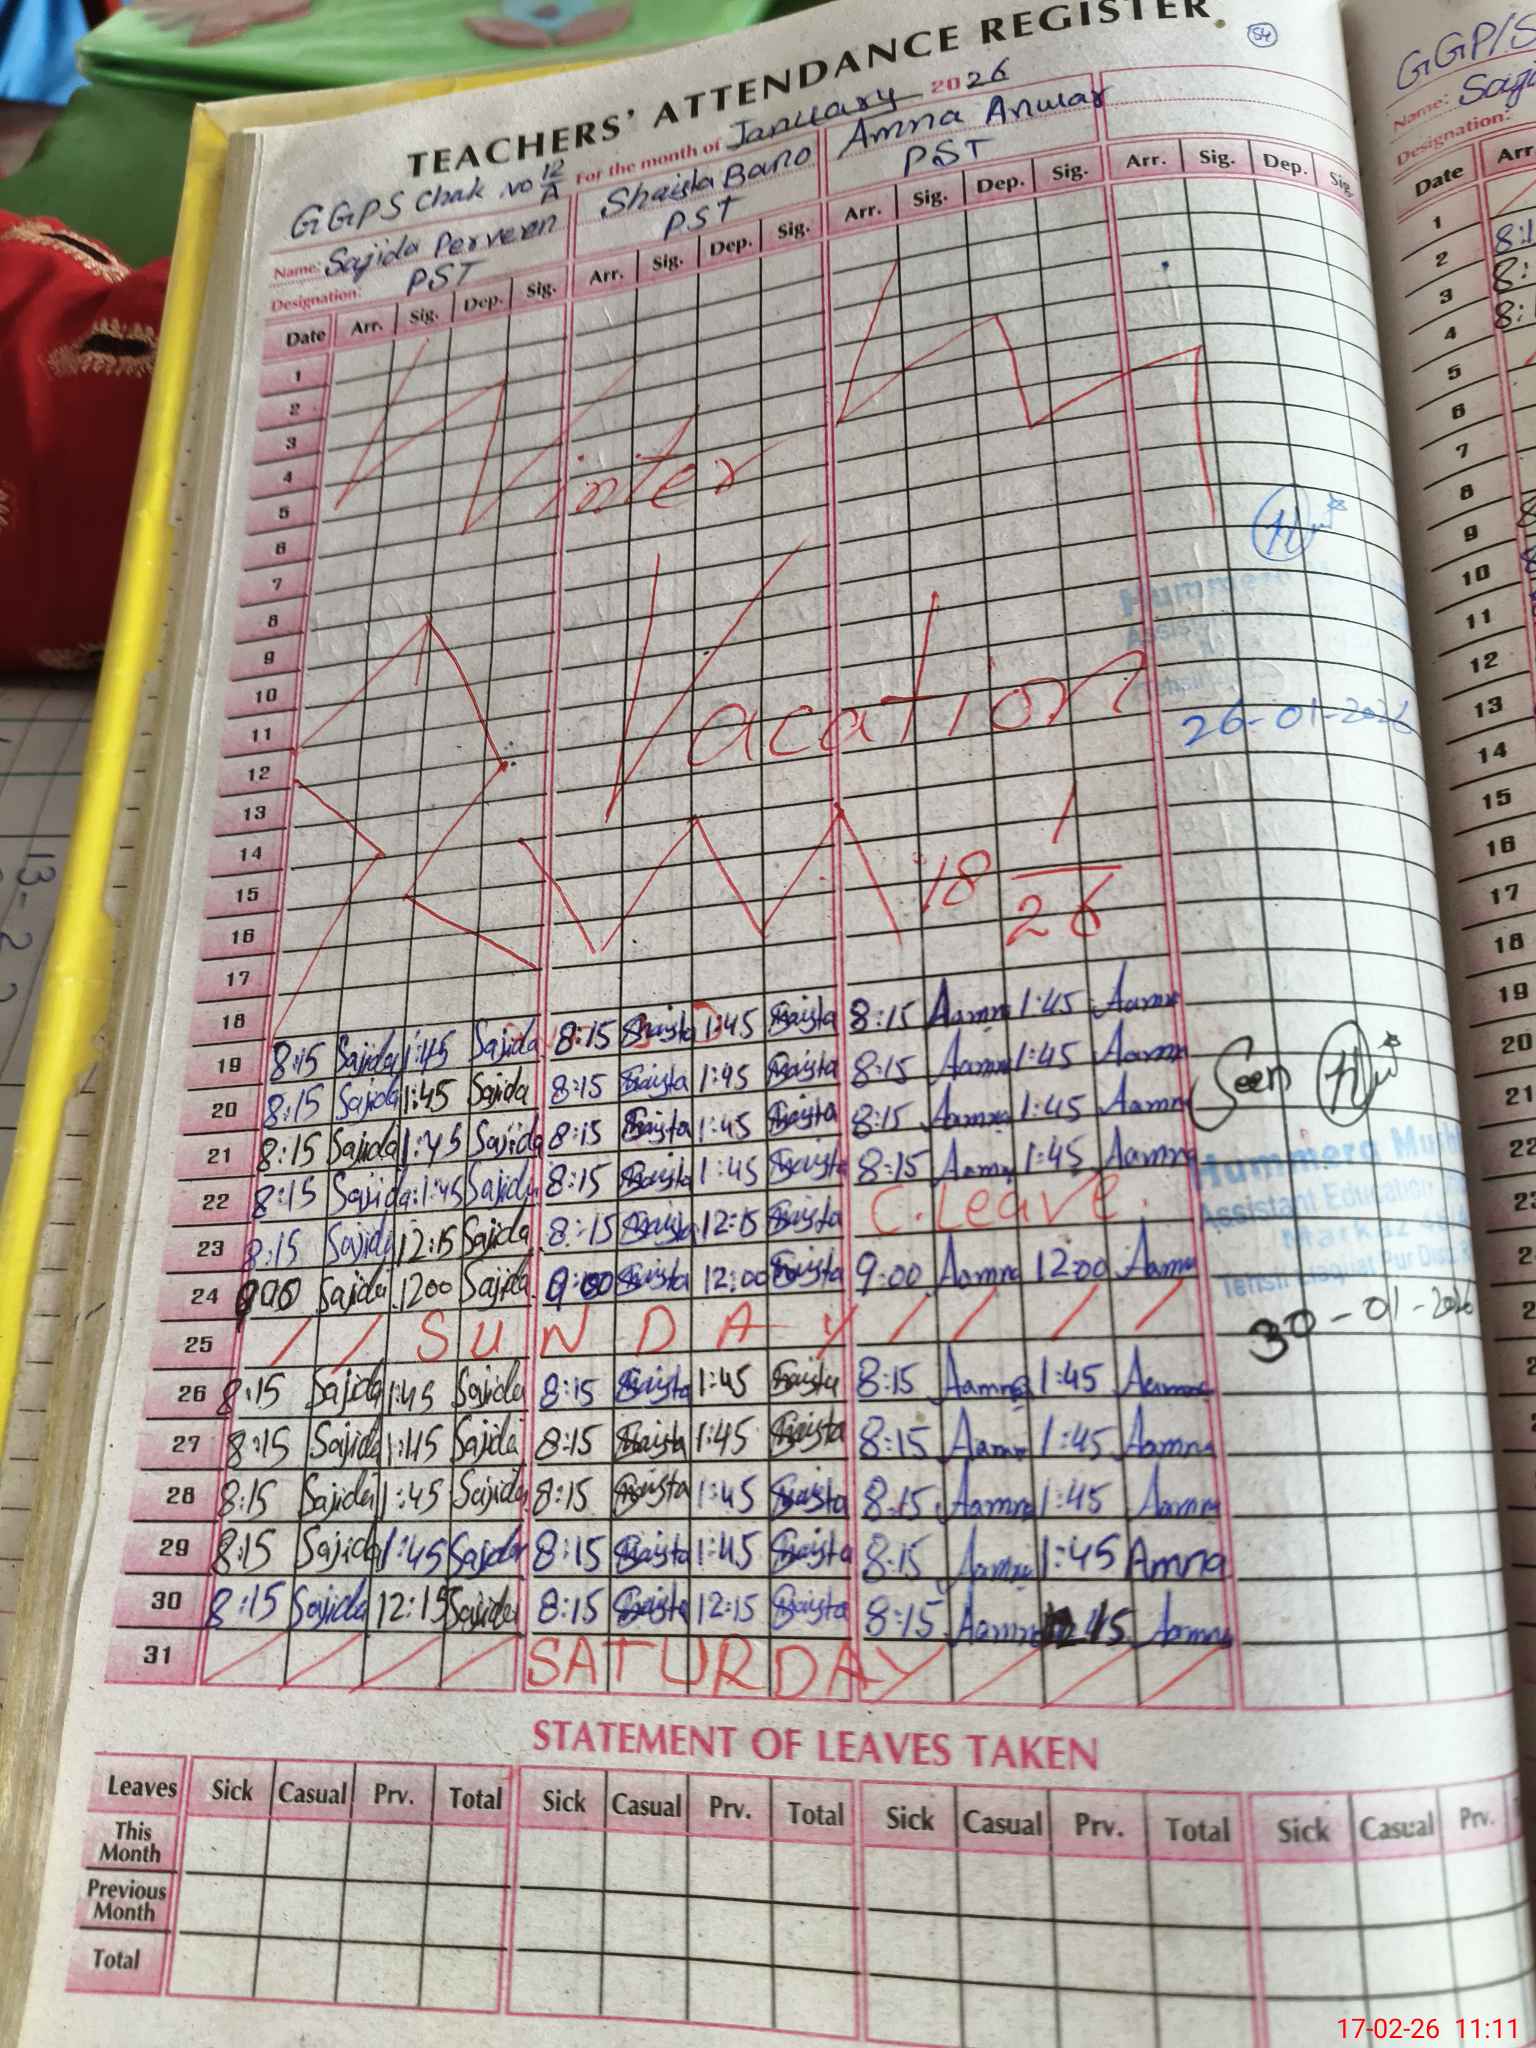 TEACHERS' ATTENDANCE REGISTER
54
GGPS Chak No 12/A For the month of January 2026
Name: Sajida Perveen Shaista Bano Amna Anwar
Designation: PST PST PST
Date Arr. Sig. Dep. Sig. Arr. Sig. Dep. Sig. Arr. Sig. Dep. Sig. Arr. Sig. Dep. Sig.
1
2
3
4
5
Winter
6
7
8
9
10
11
Vacation
12
13
14
15
18 1/26
16
17
18
26-01-2026
19 8:15 Sajida 1:45 Sajida 8:15 Shaista 1:45 Shaista 8:15 Aamna 1:45 Aamna
20 8:15 Sajida 1:45 Sajida 8:15 Shaista 1:45 Shaista 8:15 Aamna 1:45 Aamna
21 8:15 Sajida 1:45 Sajida 8:15 Shaista 1:45 Shaista 8:15 Aamna 1:45 Aamna
22 8:15 Sajida 1:45 Sajida 8:15 Shaista 1:45 Shaista 8:15 Aamna 1:45 Aamna
23 8:15 Sajida 12:15 Sajida 8:15 Shaista 12:15 Shaista C. Leave.
24 900 Sajida 1200 Sajida 9:00 Shaista 12:00 Shaista 9:00 Aamna 1200 Aamna
25 SUNDAY
26 8:15 Sajida 1:45 Sajida 8:15 Shaista 1:45 Shaista 8:15 Aamna 1:45 Aamna
27 8:15 Sajida 1:45 Sajida 8:15 Shaista 1:45 Shaista 8:15 Aamna 1:45 Aamna
28 8:15 Sajida 1:45 Sajida 8:15 Shaista 1:45 Shaista 8:15 Aamna 1:45 Aamna
29 8:15 Sajida 1:45 Sajida 8:15 Shaista 1:45 Shaista 8:15 Aamna 1:45 Amna
30 8:15 Sajida 12:15 Sajida 8:15 Shaista 12:15 Shaista 8:15 Aamna 12 15 Aamna
31 SATURDAY
Seen
Hummera
Assistant Education
Markaz
Tehsil Liaquat Pur Dist.
30-01-2026
STATEMENT OF LEAVES TAKEN
Leaves Sick Casual Prv. Total Sick Casual Prv. Total Sick Casual Prv. Total Sick Casual Prv.
This Month
Previous Month
Total
GGP/S
Name:
Designation:
Date Arr
1
2
3
4
5
6
7
8
9
10
11
12
13
14
15
16
17
18
19
20
21
22
17-02-26 11:11